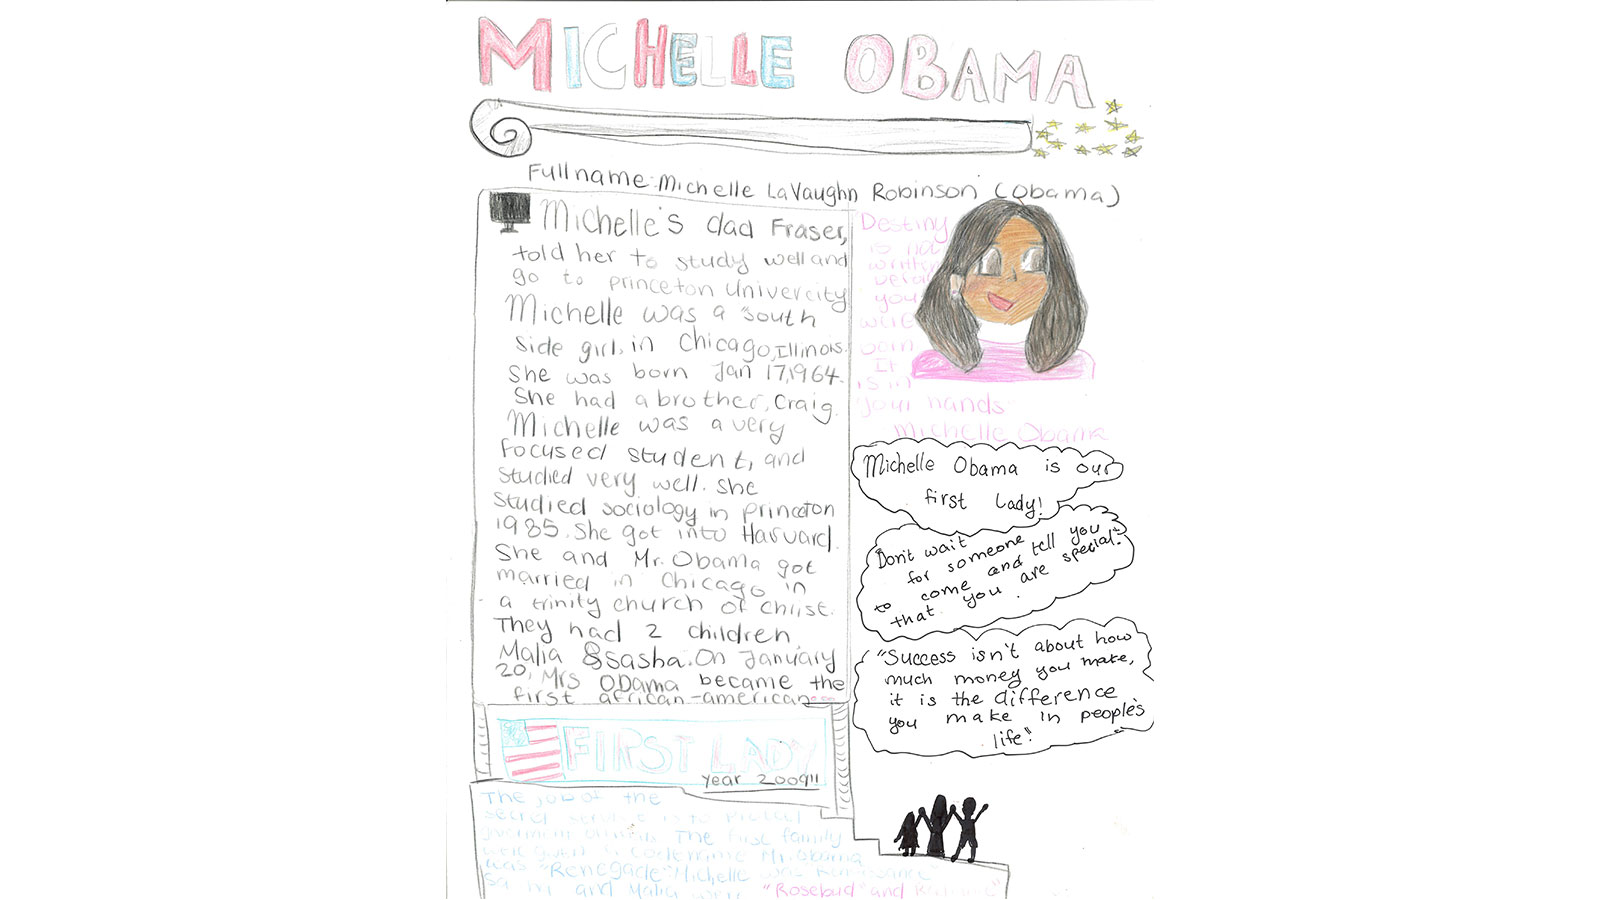 MICHELLE OBAMA
Full name: Michelle LaVaughn Robinson (Obama)
Michelle's dad Fraser,
told her to study well and
go to princeton Univercity
Michelle was a south
side girl, in Chicago, Illinois.
She was born Jan 17, 1964.
She had a brother, Craig.
Michelle was a very
focused student, and
studied very well. She
studied sociology in princeton
1985. She got into Harvard.
She and Mr. Obama got
married in Chicago in
a trinity church of christ.
They had 2 children
Malia & Sasha. On January
20, Mrs Obama became the
first african-american...
FIRST LADY
year 2009!!
The job of the
secret service is to protect
The first family
were given a codename Mr. Obama
was "Renegade" Michelle was
and Malia were "Rosebud" and
Destiny
is not
written
before
you
were
born
It
is in
your hands
Michelle Obama
Michelle Obama is our
first Lady!
Don't wait
for someone
to come and tell you
that you are special."
"Success isn't about how
much money you make,
it is the difference
you make in people's
life."